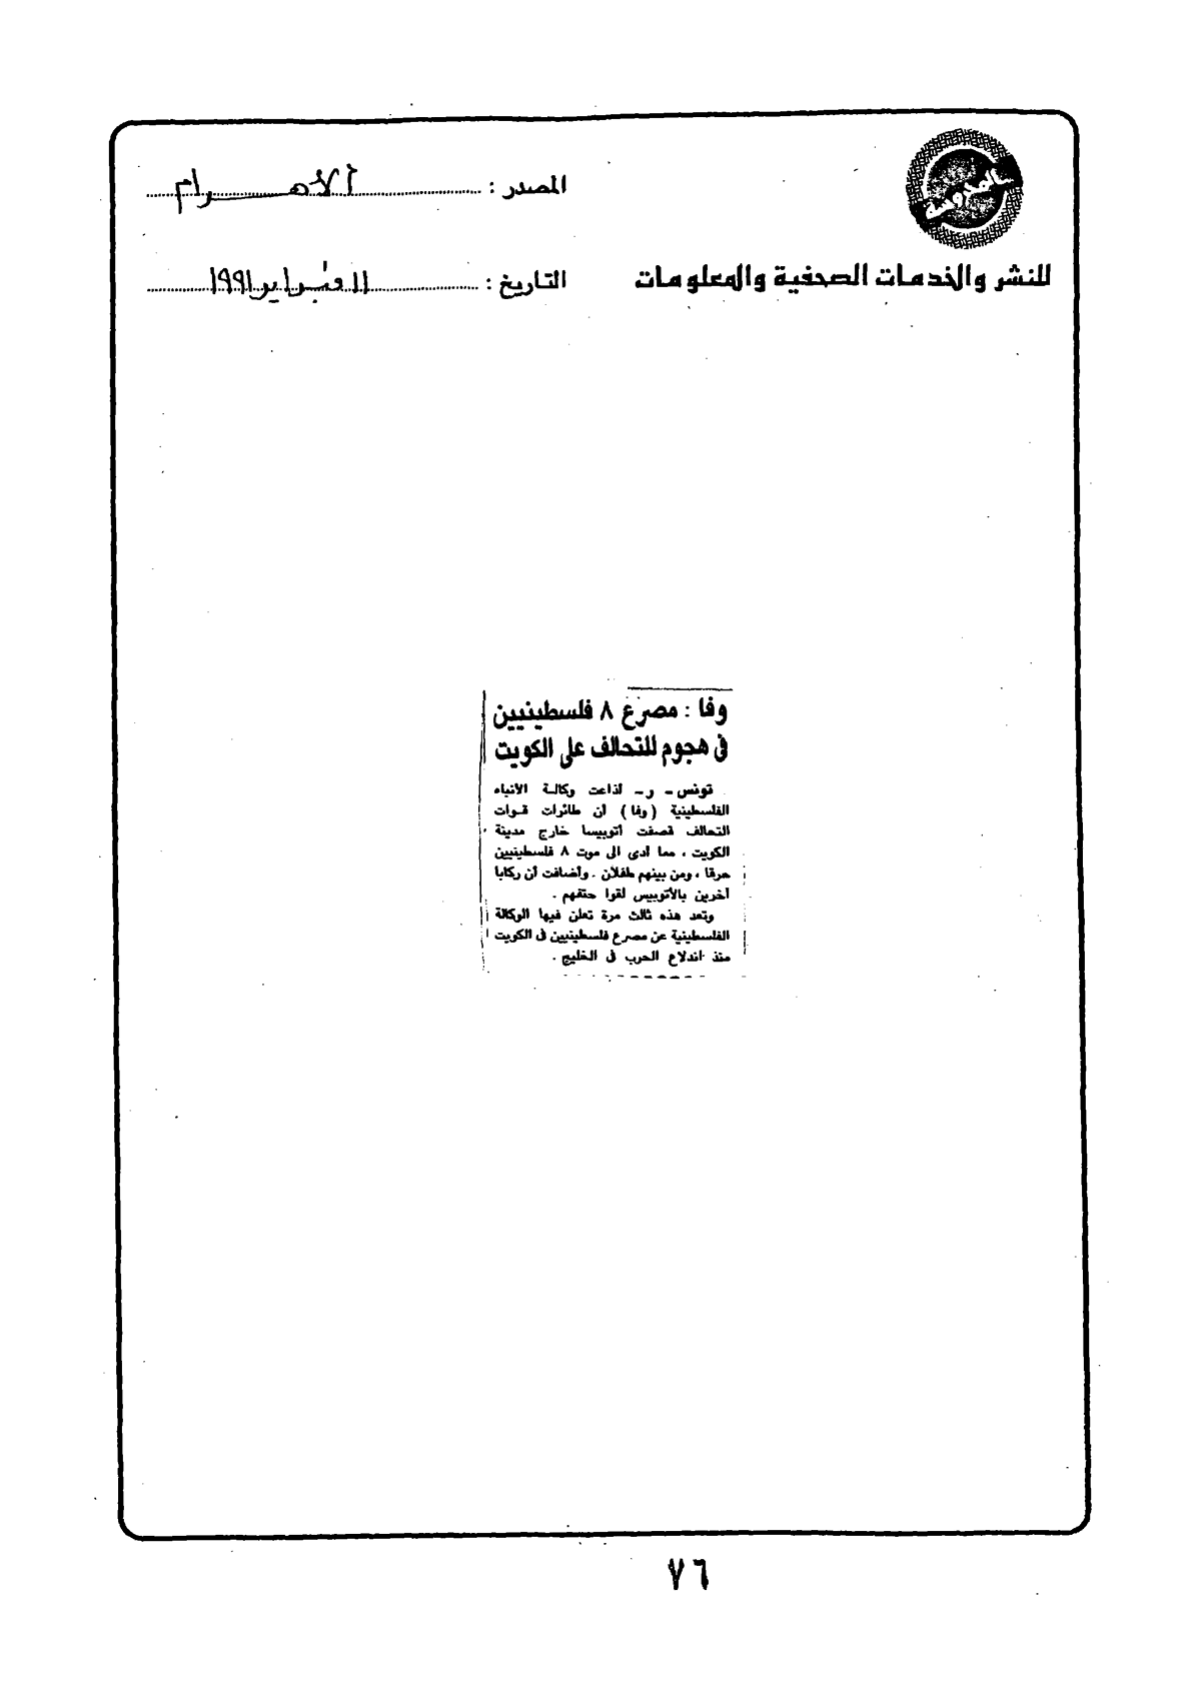 المصدر : الأهرام
للنشر والخدمات الصحفية والمعلومات
التاريخ : ١١ فبراير ١٩٩١
وفا : مصرع ٨ فلسطينيين
فى هجوم للتحالف على الكويت
تونس - ر - أذاعت وكالة الأنباء
الفلسطينية (وفا) أن طائرات قوات
التحالف قصفت أتوبيسا خارج مدينة
الكويت ، مما أدى الى موت ٨ فلسطينيين
حرقا ، ومن بينهم طفلان . وأضافت أن ركابا
آخرين بالأتوبيس لقوا حتفهم .
وتعد هذه ثالث مرة تعلن فيها الوكالة
الفلسطينية عن مصرع فلسطينيين فى الكويت
منذ اندلاع الحرب فى الخليج .
٧٦